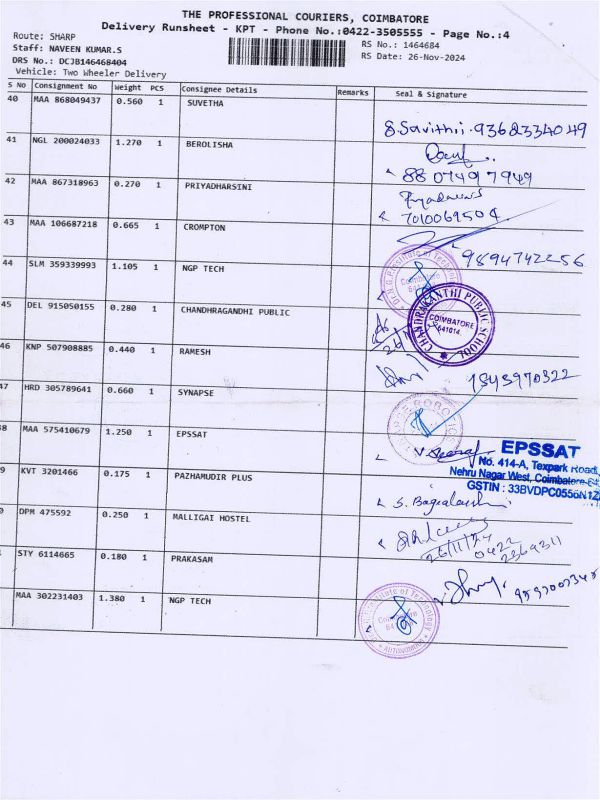 THE PROFESSIONAL COURIERS, COIMBATORE
Delivery Runsheet - KPT - Phone No.:0422-3505555 - Page No.:4
Route: SHARP
RS No.: 1464684
Staff: NAVEEN KUMAR.S
RS Date: 26-Nov-2024
DRS No.: DCJB146468404
Vehicle: Two Wheeler Delivery
S No Consignment No Weight PCS Consignee Details Remarks Seal & Signature
40 MAA 868049437 0.560 1 SUVETHA
S.Savithii.93682334049
41 NGL 200024033 1.270 1 BEROLISHA
8807497949
42 MAA 867318963 0.270 1 PRIYADHARSINI
7010069504
43 MAA 106687218 0.665 1 CROMPTON
9894742256
44 SLM 359339993 1.105 1 NGP TECH
Coimbatore
45 DEL 915050155 0.280 1 CHANDHRAGANDHI PUBLIC
CHANDRAKANTHI PUBLIC SCHOOL
COIMBATORE
641014
46 KNP 507908885 0.440 1 RAMESH
47 HRD 305789641 0.660 1 SYNAPSE
8 MAA 575410679 1.250 1 EPSSAT
EPSSAT
No. 414-A, Texpark Road,
Nehru Nagar West, Coimbatore-64
GSTIN : 33BVDPC0556N1Z
9 KVT 3201466 0.175 1 PAZHAMUDIR PLUS
0 DPM 475592 0.250 1 MALLIGAI HOSTEL
26/11/24
0422
STY 6114665 0.180 1 PRAKASAM
MAA 302231403 1.380 1 NGP TECH
Institute of Technology
Coimbatore
AUTONOMOUS